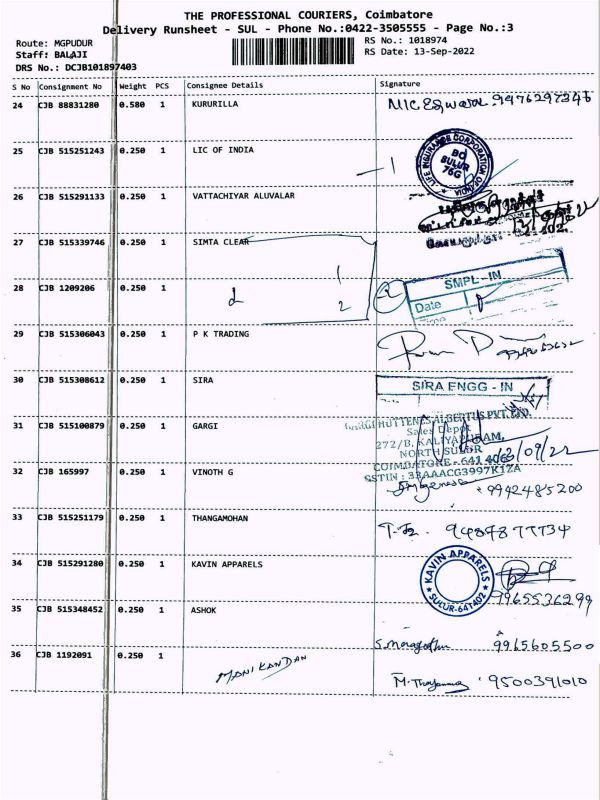 THE PROFESSIONAL COURIERS, Coimbatore
Delivery Runsheet - SUL - Phone No.:0422-3505555 - Page No.:3
Route: MGPUDUR
RS No.: 1018974
Staff: BALAJI
RS Date: 13-Sep-2022
DRS No.: DCJB101897403
S No Consignment No Weight PCS Consignee Details Signature
24 CJB 88831280 0.580 1 KURURILLA 9976297346
25 CJB 515251243 0.250 1 LIC OF INDIA
LIFE INSURANCE CORPORATION OF INDIA
BO
SULUR
76G
1
26 CJB 515291133 0.250 1 VATTACHIYAR ALUVALAR
27 CJB 515339746 0.250 1 SIMTA CLEAR
1
28 CJB 1209206 0.250 1
2
2
SMPL - IN
Date
29 CJB 515306043 0.250 1 P K TRADING
30 CJB 515308612 0.250 1 SIRA
SIRA ENGG - IN
31 CJB 515100879 0.250 1 GARGI
HUTTENES ALBERTUS PVT. LTD.
Sales Depot
272/B, KALIYAPURAM,
NORTH SULUR
COIMBATORE - 641 402
13/09/22
GSTIN : 33AAACG3997K1ZA
32 CJB 165997 0.250 1 VINOTH G
9942485200
33 CJB 515251179 0.250 1 THANGAMOHAN
9489877734
34 CJB 515291280 0.250 1 KAVIN APPARELS
KAVIN APPARELS
SULUR-641402
9965536299
35 CJB 515348452 0.250 1 ASHOK
9965605500
36 CJB 1192091 0.250 1 MANIKANDAN
9500391010